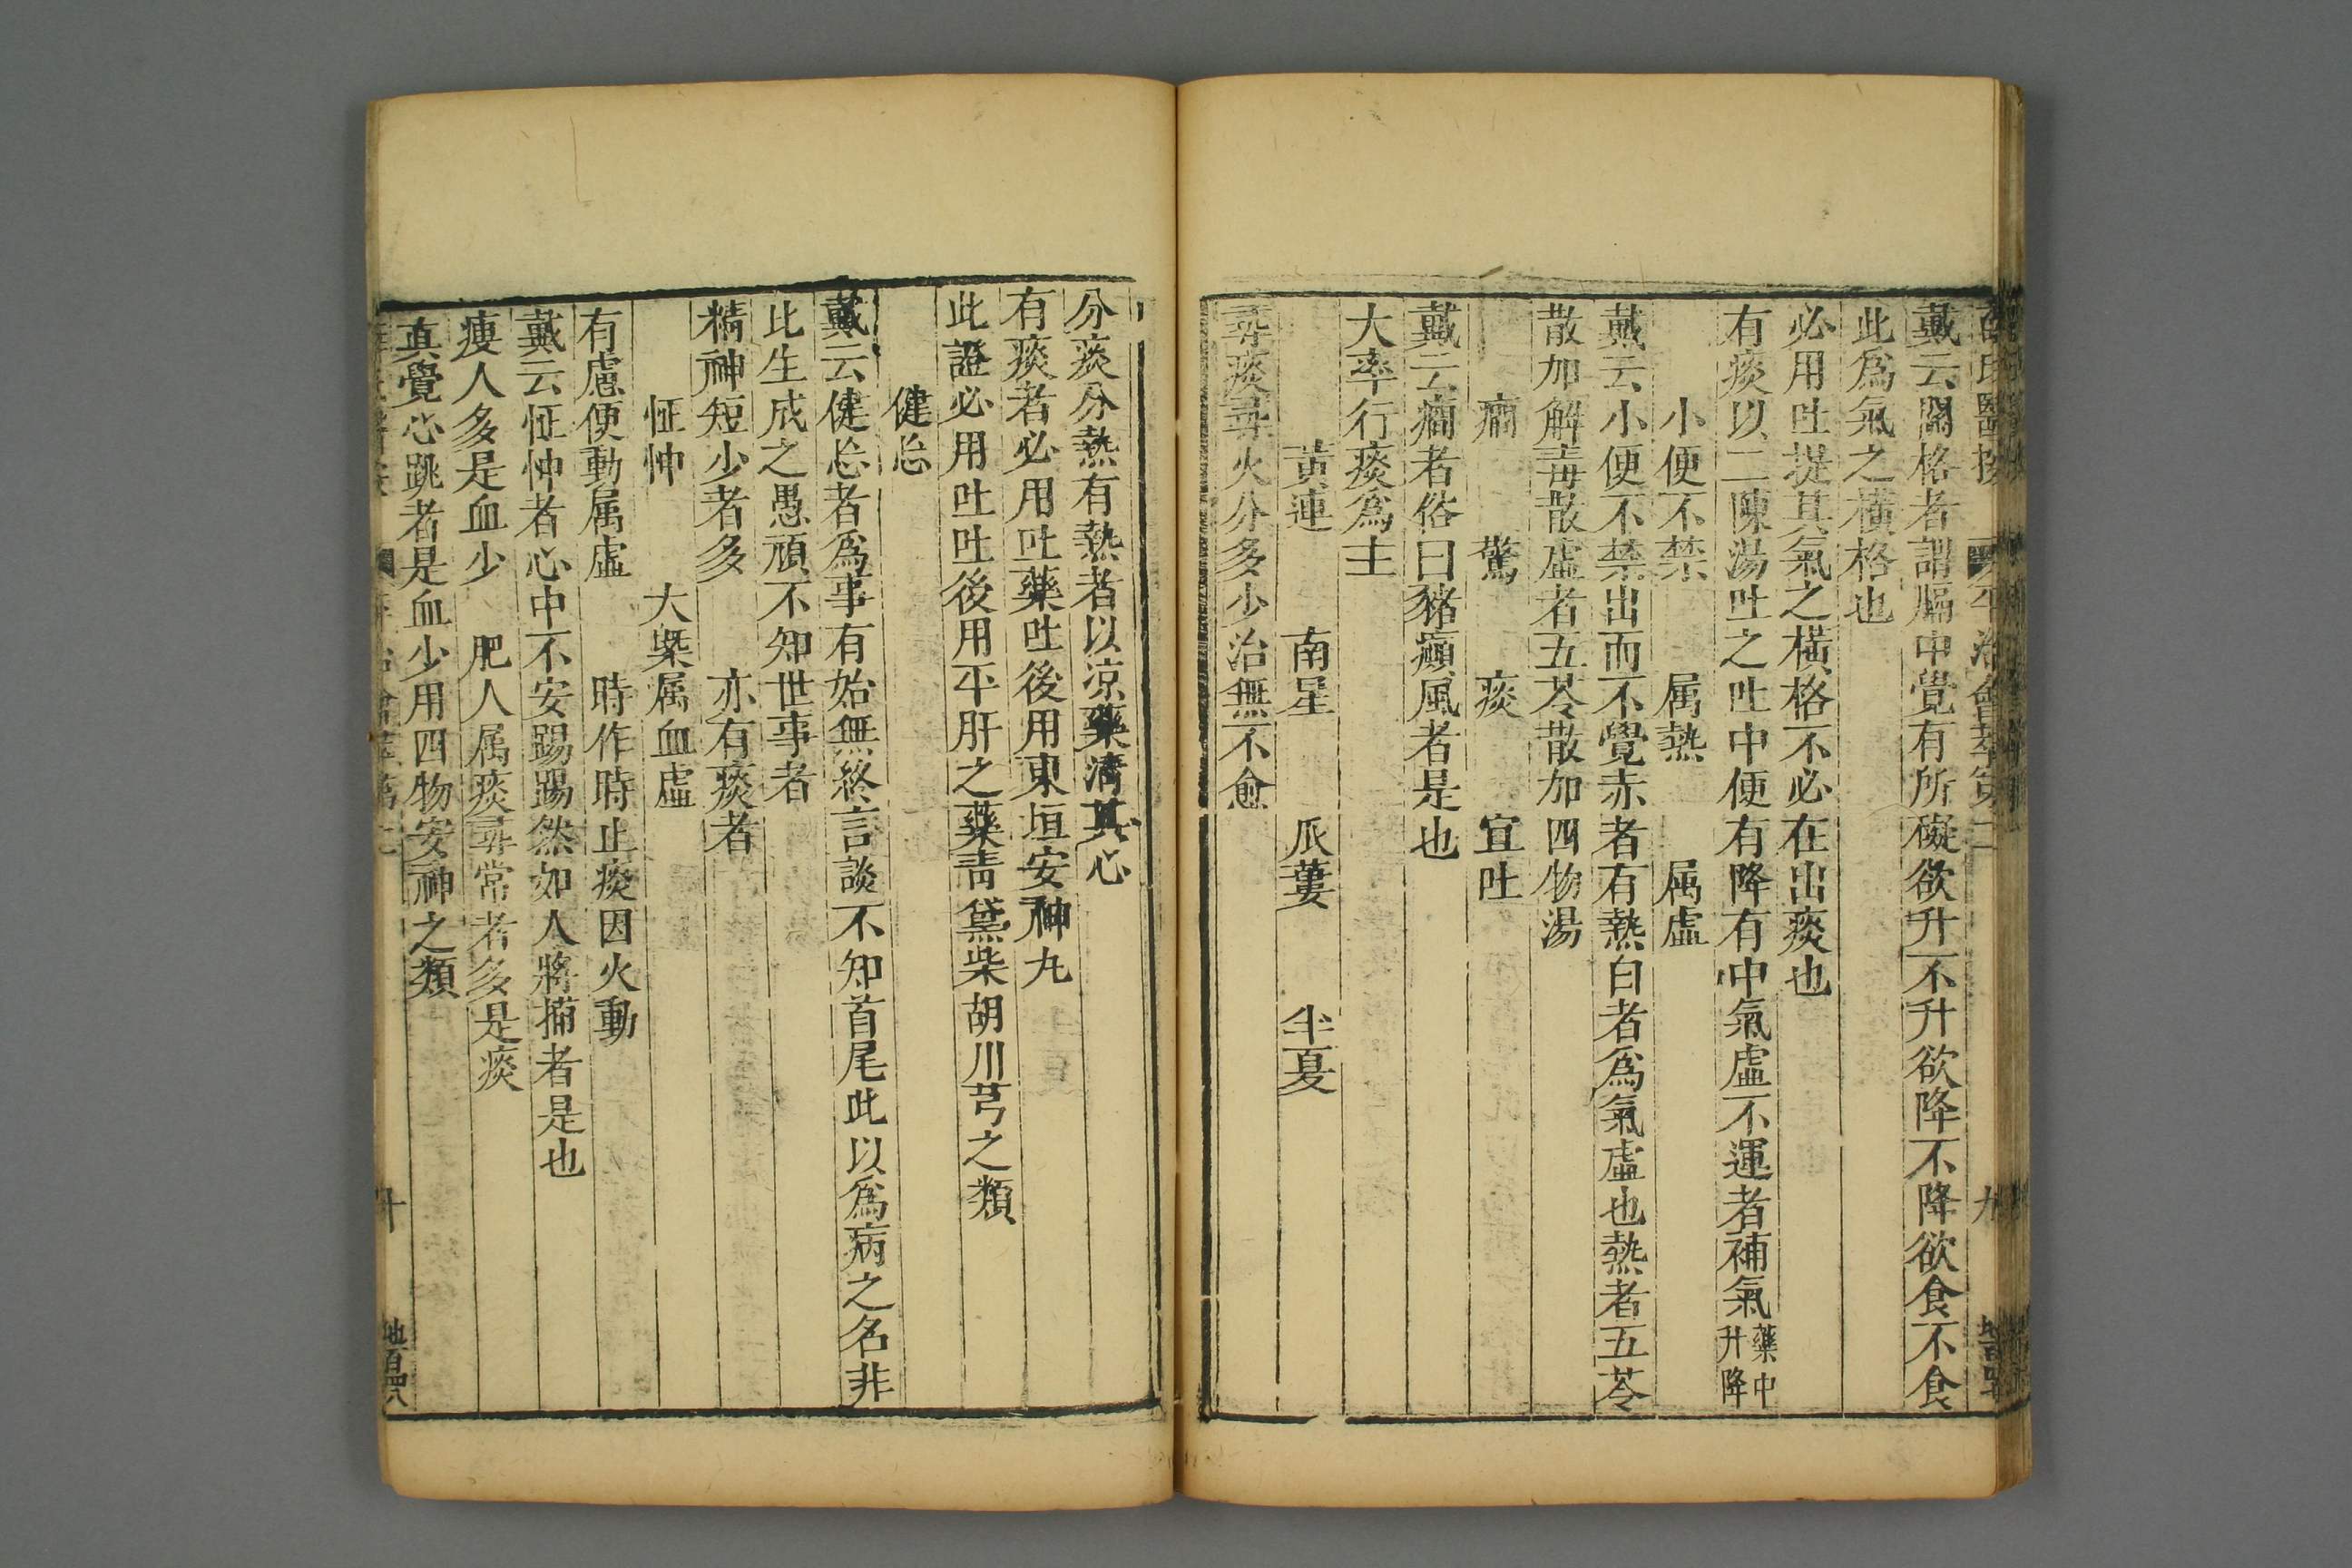 薛氏醫按 平治會萃卷二 九
戴云關格者謂膈中覺有所礙欲升不升欲降不降欲食不食
此爲氣之橫格也
必用吐提其氣之橫格不必在出痰也
有痰以二陳湯吐之吐中便有降有中氣虛不運者補氣藥中升降
小便不禁 属熱 属虛
戴云小便不禁出而不覺赤者有熱白者爲氣虛也熱者五苓
散加解毒散虛者五苓散加四物湯
癎 驚 痰 宜吐
戴云癎者俗曰豬癲風者是也
大率行痰爲主
黃連 南星 瓜蔞 半夏
尋痰尋火分多少治無不愈
分痰分熱有熱者以凉藥清其心
有痰者必用吐藥吐後用東垣安神丸
此證必用吐吐後用平肝之藥青黛柴胡川芎之類
健忘
戴云健忘者爲事有始無終言談不知首尾此以爲病之名非
此生成之愚頑不知世事者
精神短少者多 亦有痰者
怔忡 大槩属血虛
有慮便動属虛 時作時止痰因火動
戴云怔忡者心中不安踢踢然如人將捕者是也
瘦人多是血少 肥人属痰尋常者多是痰
真覺心跳者是血少用四物安神之類
十 地百四八